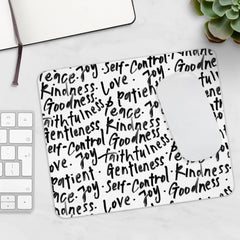 Peace · Joy · Self-Control
Kindness · Love
Goodness · Patient
Faithfulness · Peace · Joy
Gentleness · Kindness
Self-Control · Goodness
Love · faithfulness
Patient · Gentleness
Joy · Self-Control
Kindness · Love · Kindness
Goodness · Goodness